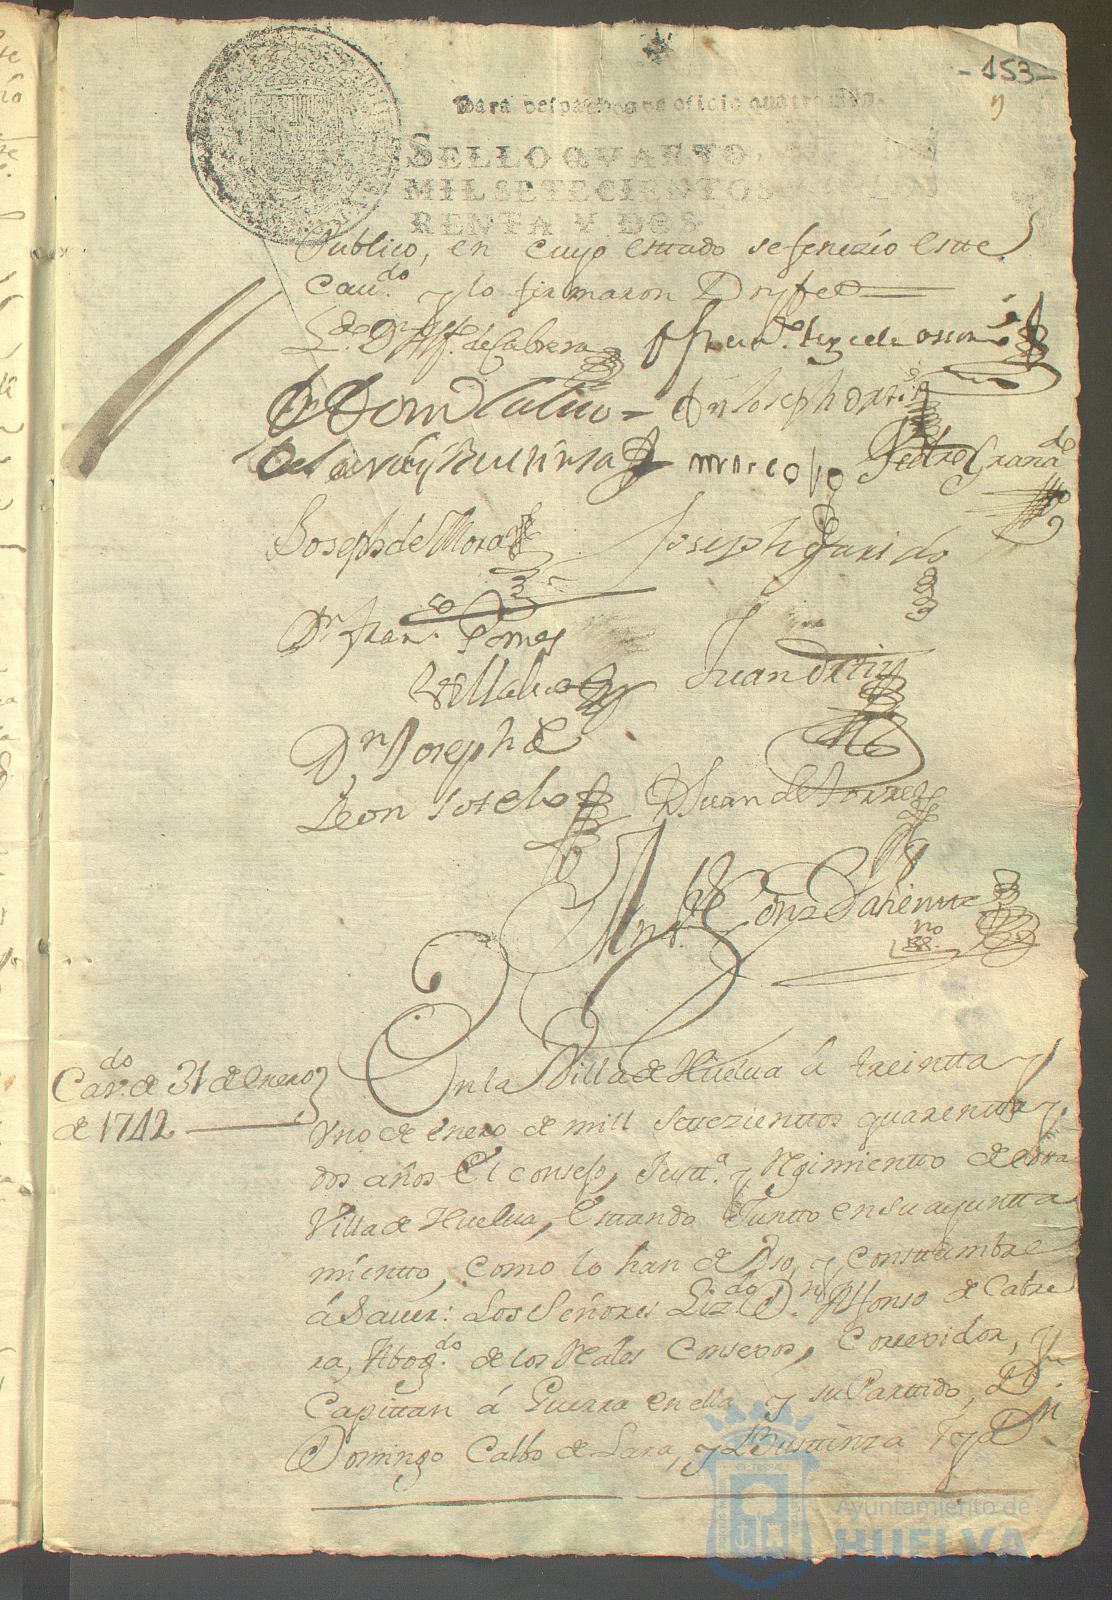 -153-
Para despachos de oficio quatro mrs.
SELLO QVARTO,
MIL SETECIENTOS
RENTA Y DOS
Publico, en cuyo esttado se fenezio estte
Cau.do y lo firmaron Doy fee
L.do Dn Alf.o de Cabrera
Dn Dom Calbo Dn Joseph ortiz
de Lara y Bustinza marcolo Pedro Granado
Joseph de Mora Joseph Garido
Dn Fran.co Gomez
Villalva Juan Ortiz
Dn Joseph de
Leon Sotelo Dn Juan de Torres
Cav.do de 31 de Enero
de 1742
En la Villa de Huelua á treintta y
Uno de enero de mill settezienttos quarentta y
dos años El consejo, Justt.a y Rejimientto de estta
Villa de Huelua, Esttando Juntto en su ayuntta
mientto, como lo han de Uso, y consttumbre
á Sauer: Los Señores Liz.do Dn Alfonso de Cabre
ra, Abog.do de los Reales Consexos, Correxidor, y
Capittan á Guerra en ella y su Parttido, Dn.
Domingo Calbo de Lara, y Busttinza y Dn
Ayuntamiento de
HUELVA